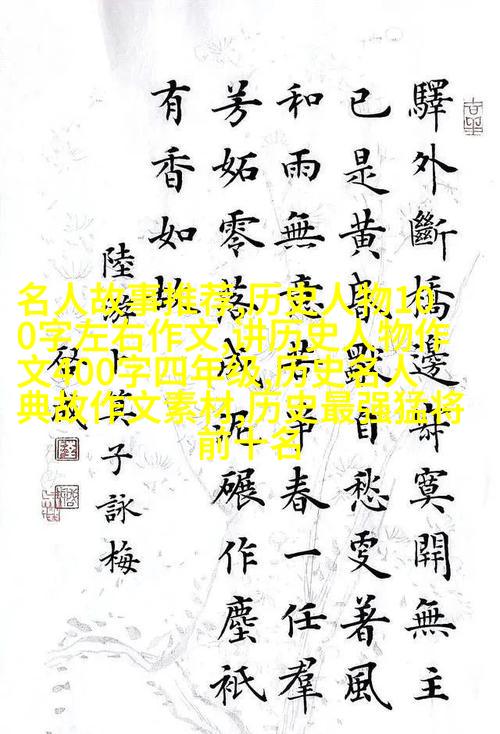 驛外斷橋邊寂寞開無主
已是黃昏獨自愁更著風
和雨無意苦爭春一任羣
芳妬零落成泥碾作塵祇
有香如故
陸游卜算子詠梅
名人故事推荐,历史人物10
0字左右作文,讲历史人物作
文400字四年级,历史名人
典故作文素材,历史最强猛将
前十名